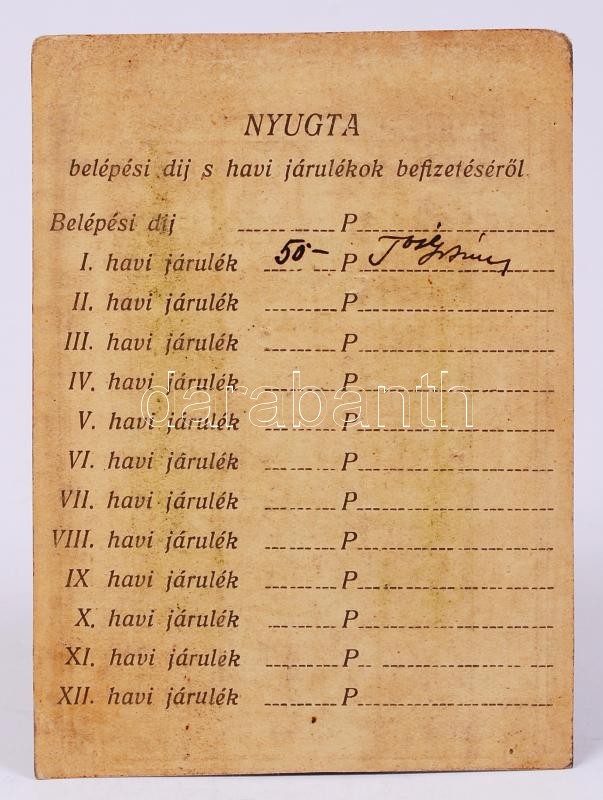 NYUGTA
belépési dij s havi járulékok befizetéséről
Belépési dij P
I. havi járulék 50- P
II. havi járulék P
III. havi járulék P
IV. havi járulék P
darabanth
V. havi járulék P
VI. havi járulék P
VII. havi járulék P
VIII. havi járulék P
IX havi járulék P
X. havi járulék P
XI. havi járulék P
XII. havi járulék P